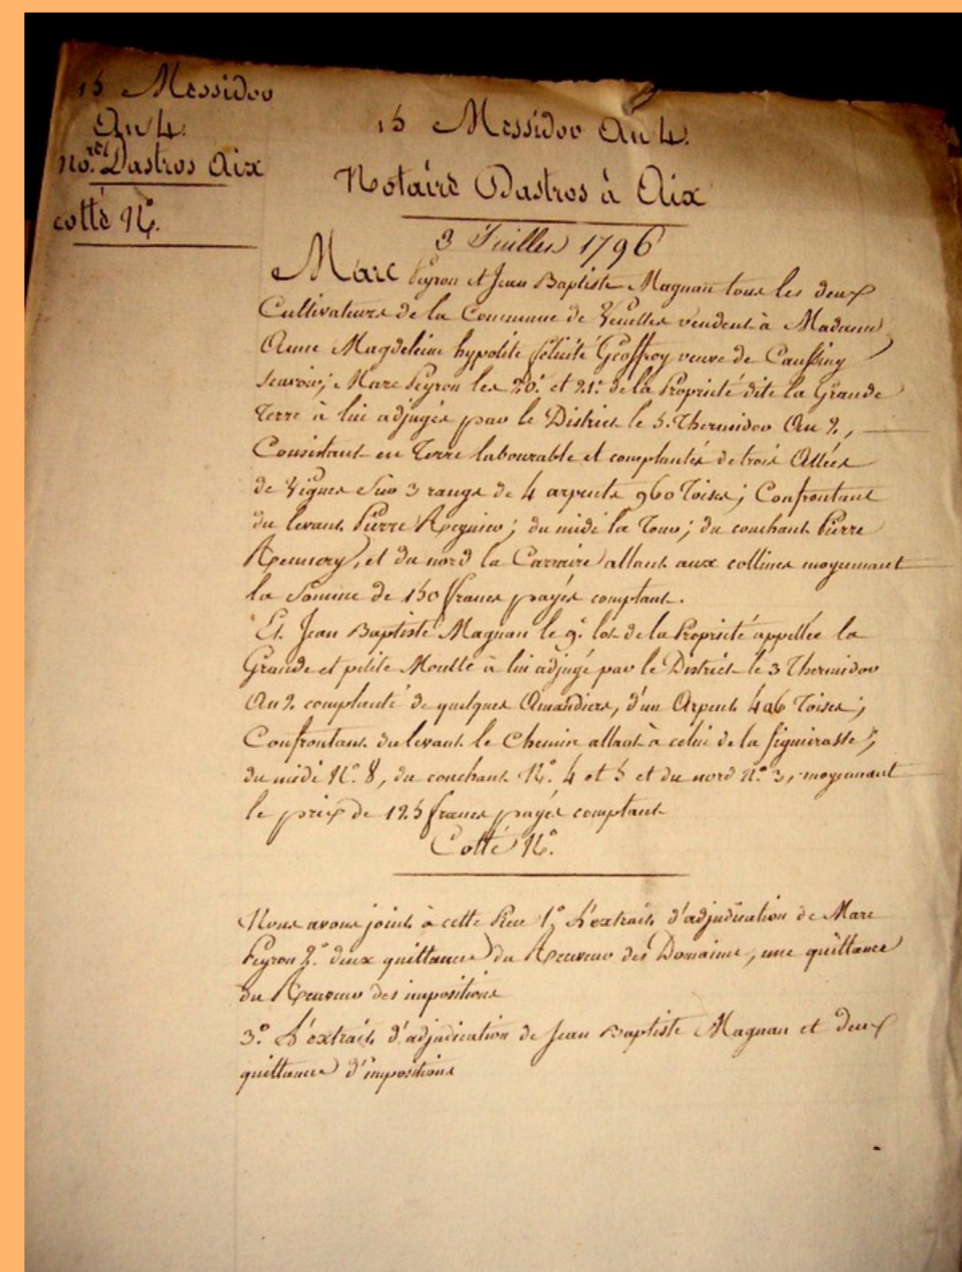 15 Messidor
An 4.
No.re Dastros Aix
cotté N°.
15 Messidor An 4.
Notaire Dastros à Aix
3 Juillet 1796
Marc Peyron et Jean Baptiste Magnan tous les deux
Cultivateurs de la Commune de Venelles vendent à Madame
Anne Magdeleine hypolite félicité Geoffroy veuve de
Sçavoir; Marc Peyron les 20e. et 21e. de la Propriété dite la Grande
Terre à lui adjugés par le District le 5. Thermidor An 2,
Consistant en Terre labourable et complantés de trois Allées
de Vignes sur 3 rangs de 4 arpents 960 Toises; Confrontant
du levant Pierre; du midi la Tour; du couchant Pierre
et du nord la Carraire allant aux collines moyennant
la Somme de 150 francs payés comptant.
Et Jean Baptiste Magnan le 9e. lot de la Propriété appellée la
Grande et petite Moutte à lui adjugé par le District le 3 Thermidor
An 2 complanté de quelques Amandiers, d'un Arpent Toises;
Confrontant du levant le Chemin allant à celui de la figuierasse;
du midi N°. 8, du couchant N°. 4 et 5 et du nord n°. 3, moyennant
le prix de 125 francs payés comptant
Cotté N°.
Nous avons joint à cette Piece 1° L'extrait d'adjudication de Marc
Peyron 2.° deux quittances du Receveur des Domaines, une quittance
du Receveur des impositions
3.° L'extrait d'adjudication de Jean Baptiste Magnan et deux
quittances d'impositions